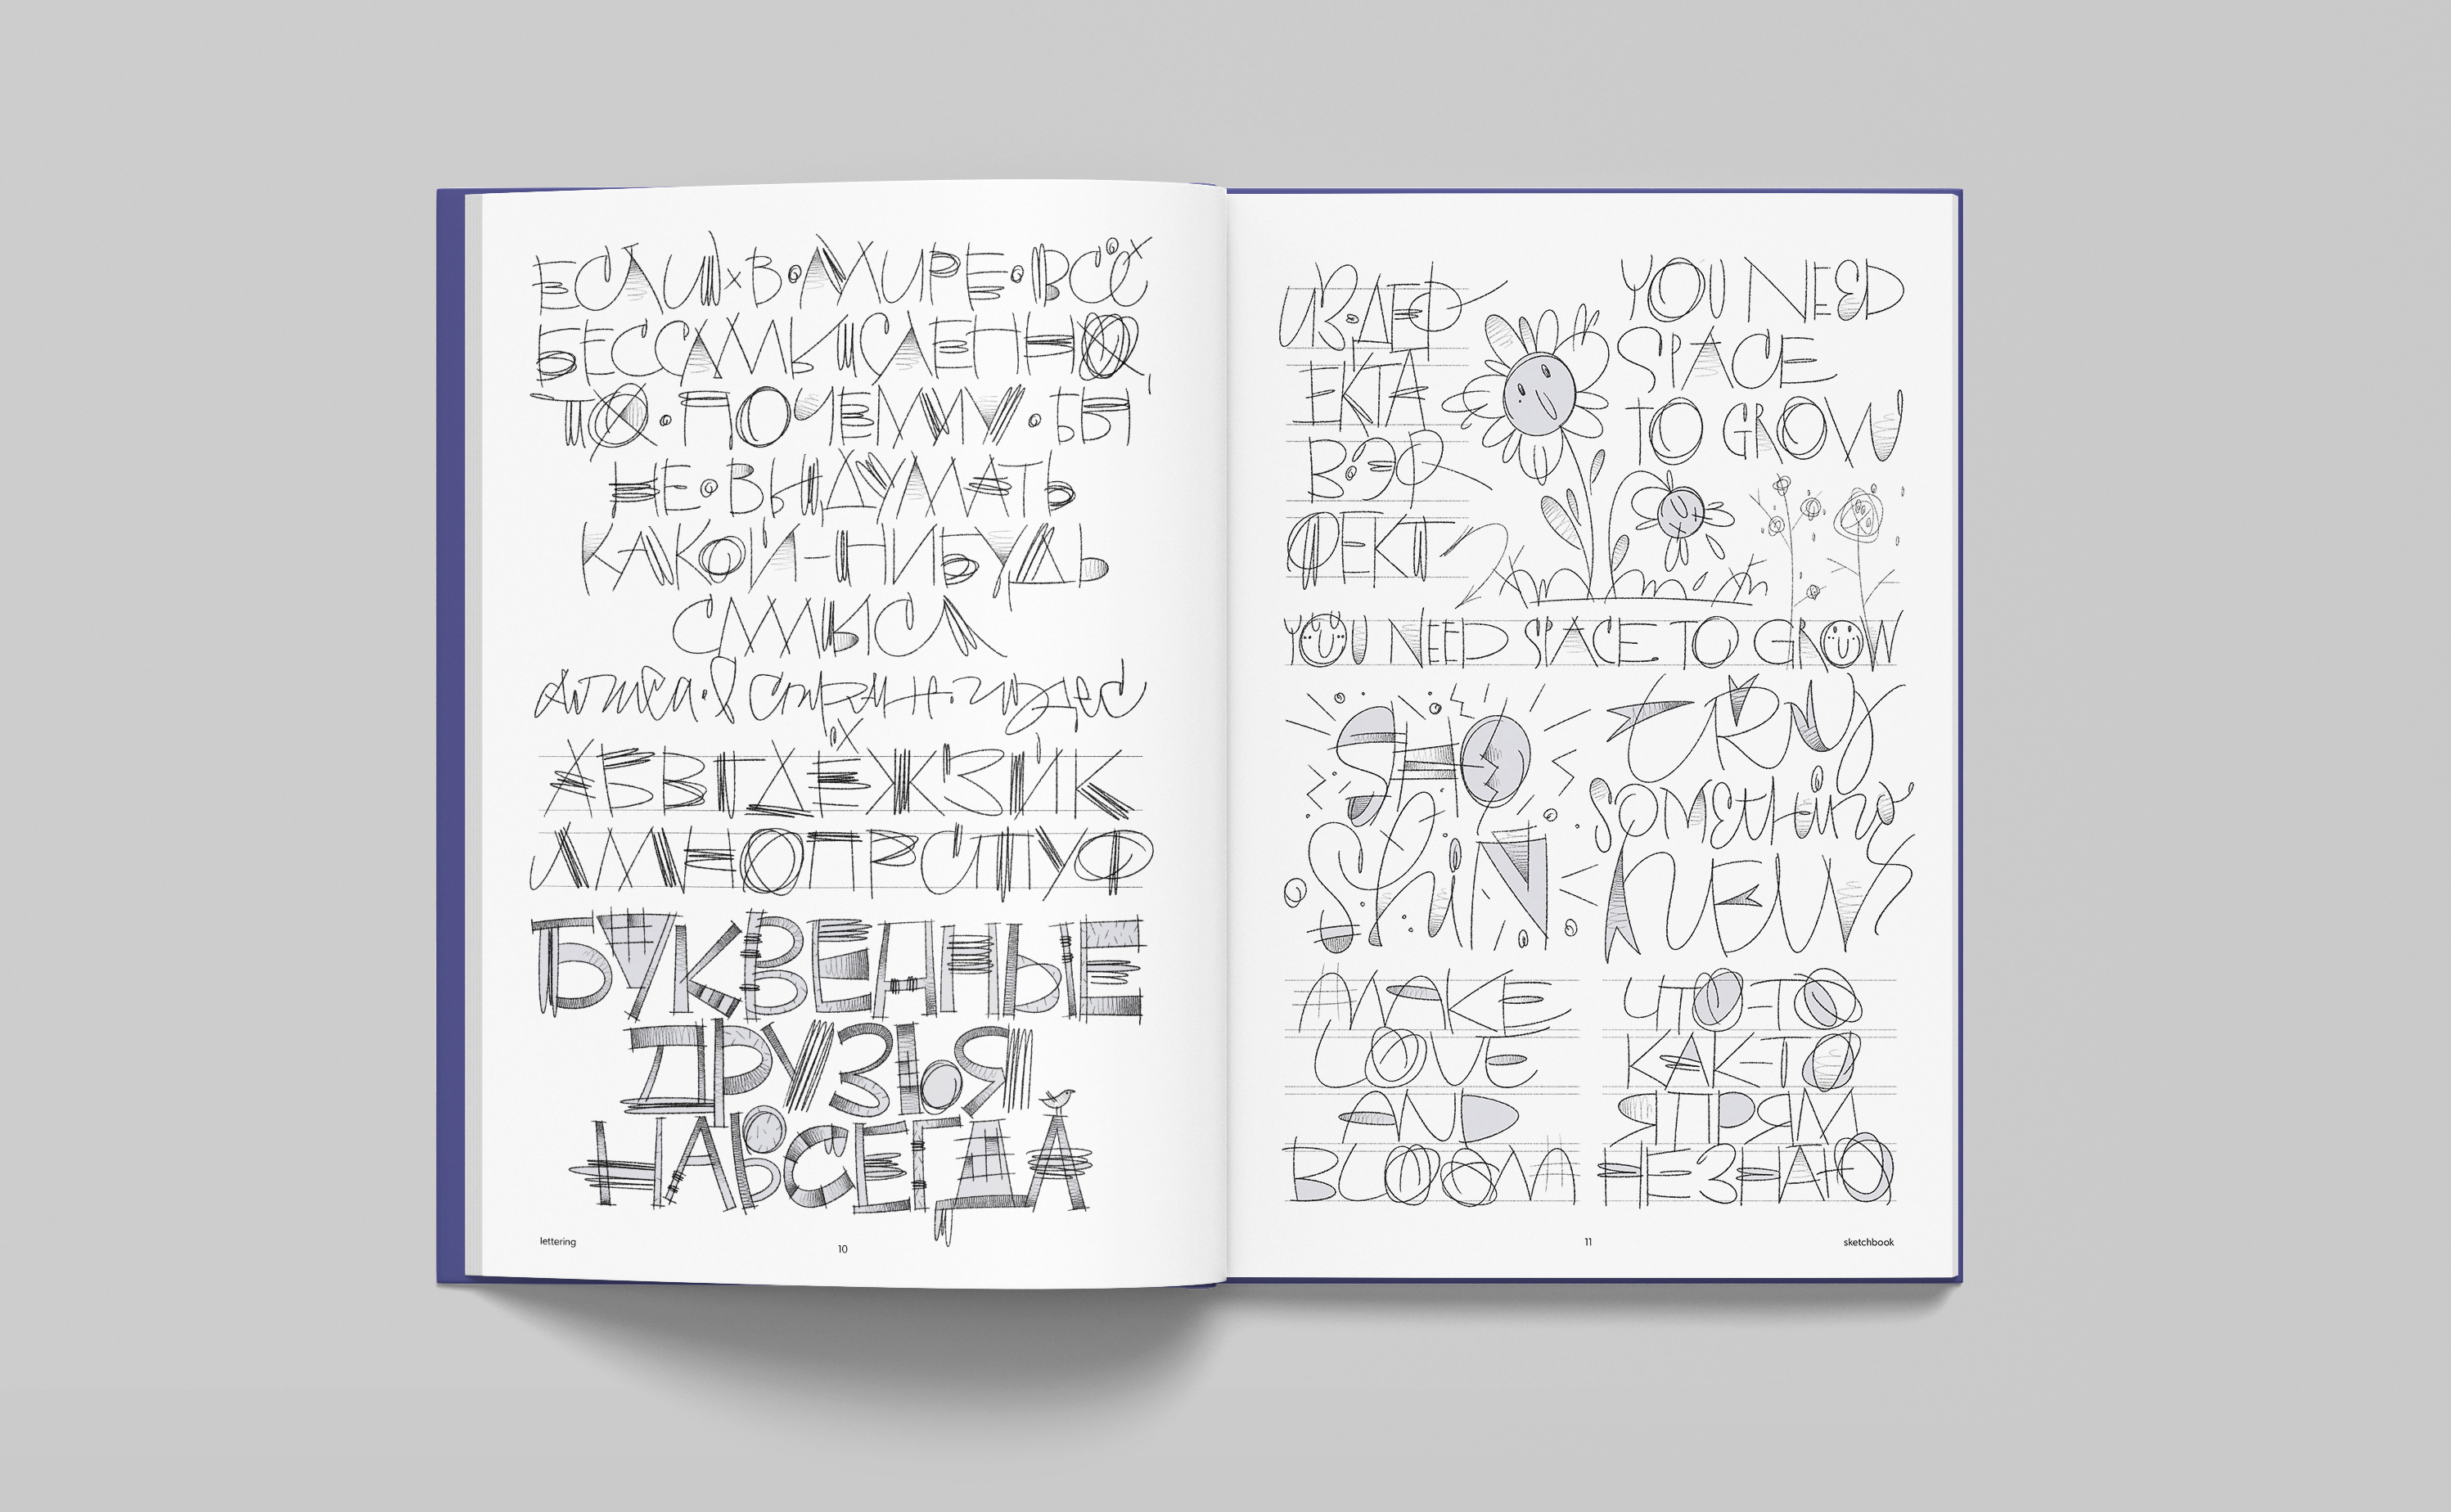 ЕСЛИ В МИРЕ ВСЁ
БЕССМЫСЛЕННО,
ТО ПОЧЕМУ БЫ
НЕ ВЫДУМАТЬ
КАКОЙ-НИБУДЬ
СМЫСЛ
алиса в стране чудес
АБВГДЕЖЗЙК
ЛМНОПРСТУФ
БУКВЕННЫЕ
ДРУЗЬЯ
НАВСЕГДА
lettering
10
ИЗ ДЕФ
ЕКТА
В ЭФ
ФЕКТ
YOU NEED
SPACE
TO GROW
YOU NEED SPACE TO GROW
SHO
ShiN
TRY
SOMEthing
NEW
MAKE
LOVE
AND
BLOOM
ЧТО-ТО
КАК-ТО
Я ПРЯМ
НЕ ЗНАЮ
11
sketchbook